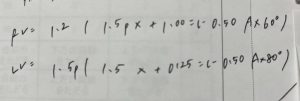 RV = 1.2 ( 1.5p x + 1.00 = (- 0.50 Ax 60°)
LV = 1.5p ( 1.5 x + 0.125 = (- 0.50 Ax 80°)